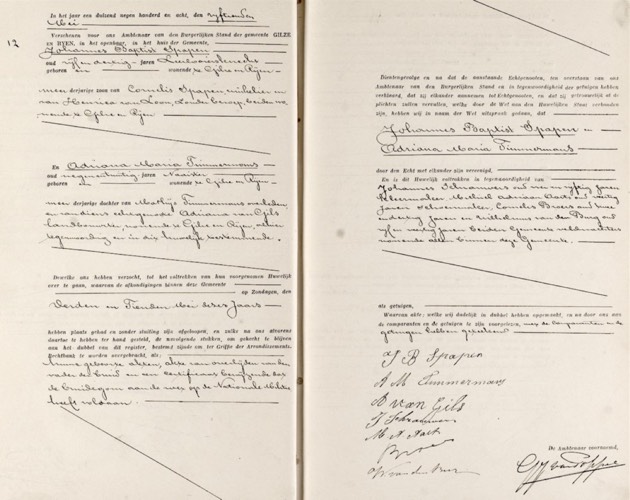 In het jaar een duizend negen honderd en acht, den vyftienden
Mei
12
Verschenen voor ons Ambtenaar van den Burgerlijken Stand des gemeente GILZE
EN RYEN, in het openbaar, in het huis der Gemeente,
Johannes Baptist Spapen
oud vijf en dertig jaren
geboren en wonende te Gilze en Rijen
meerderjarige zoon van Cornelis Spapen, winkelier en
van Henrica van Loon, zonder beroep, beiden wo-
nende te Gilze en Rijen
En Adriana Maria Timmermans
oud negen en twintig jaren Naaister
geboren en wonende te Gilze en Rijen
meerderjarige dochter van Mathijs Timmermans overleden,
en van diens echtgenoote Adriana van Gils
landbouwster, wonende te Gilze en Rijen, alhier
tegenwoordig en in dit huwelijk toestemmende.
Dewelke ons hebben verzocht, tot het voltrekken van hun voorgenomen Huwelijk
over te gaan, waarvan de afkondigingen binnen deze Gemeente
op Zondagen, den
Derden en Tienden Mei dezes Jaars
hebben plaats gehad en zonder stuiting zijn afgeloopen, en zulks na ons alvorens
daartoe te hebben ter hand gesteld, de navolgende stukken, om gehecht te blijven
aan het dubbel van dit register, bestemd zijnde om ter Griffie der Arrondissements-
Rechtbank te worden overgebracht, als:
hunne geboorte akten, akte van overlijden van den
vader der bruid en een certificaat bewijzende dat
de bruidegom aan de wet op de Nationale Militie
heeft voldaan.
Dientengevolge en na dat de aanstaande Echtgenooten, ten overstaan van ons
Ambtenaar van den Burgerlijken Stand en in tegenwoordigheid der getuigen hebben
verklaard, dat zij elkander aannemen tot Echtgenooten, en dat zij getrouwelijk al de
plichten zullen vervullen, welke door de Wet aan den Huwelijken Staat verbonden
zijn, hebben wij in naam der Wet uitspraak gedaan, dat
Johannes Baptist Spapen en
Adriana Maria Timmermans
door den Echt met elkander zijn vereenigd.
En is dit Huwelijk voltrokken in tegenwoordigheid van
Johannes Schraauwers oud zes en vijftig jaren
kleermaker, Michiel Adriaan Aarts oud veertig
jaren schoenmaker, Cornelis Broers oud twee
en dertig jaren en Wilhelmus van den Burg oud
vijf en veertig jaren beiden Gemeente veldwachters
wonende allen binnen deze Gemeente.
als getuigen,
Waarvan akte; welke wij dadelijk in dubbel hebben opgemaakt, en na door ons aan
de comparanten en de getuigen te zijn voorgelezen, met de comparanten en de
getuigen hebben geteekend
J B Spapen
A M Timmermans
A van Gils
M. A. Aarts
De Ambtenaar voornoemd,